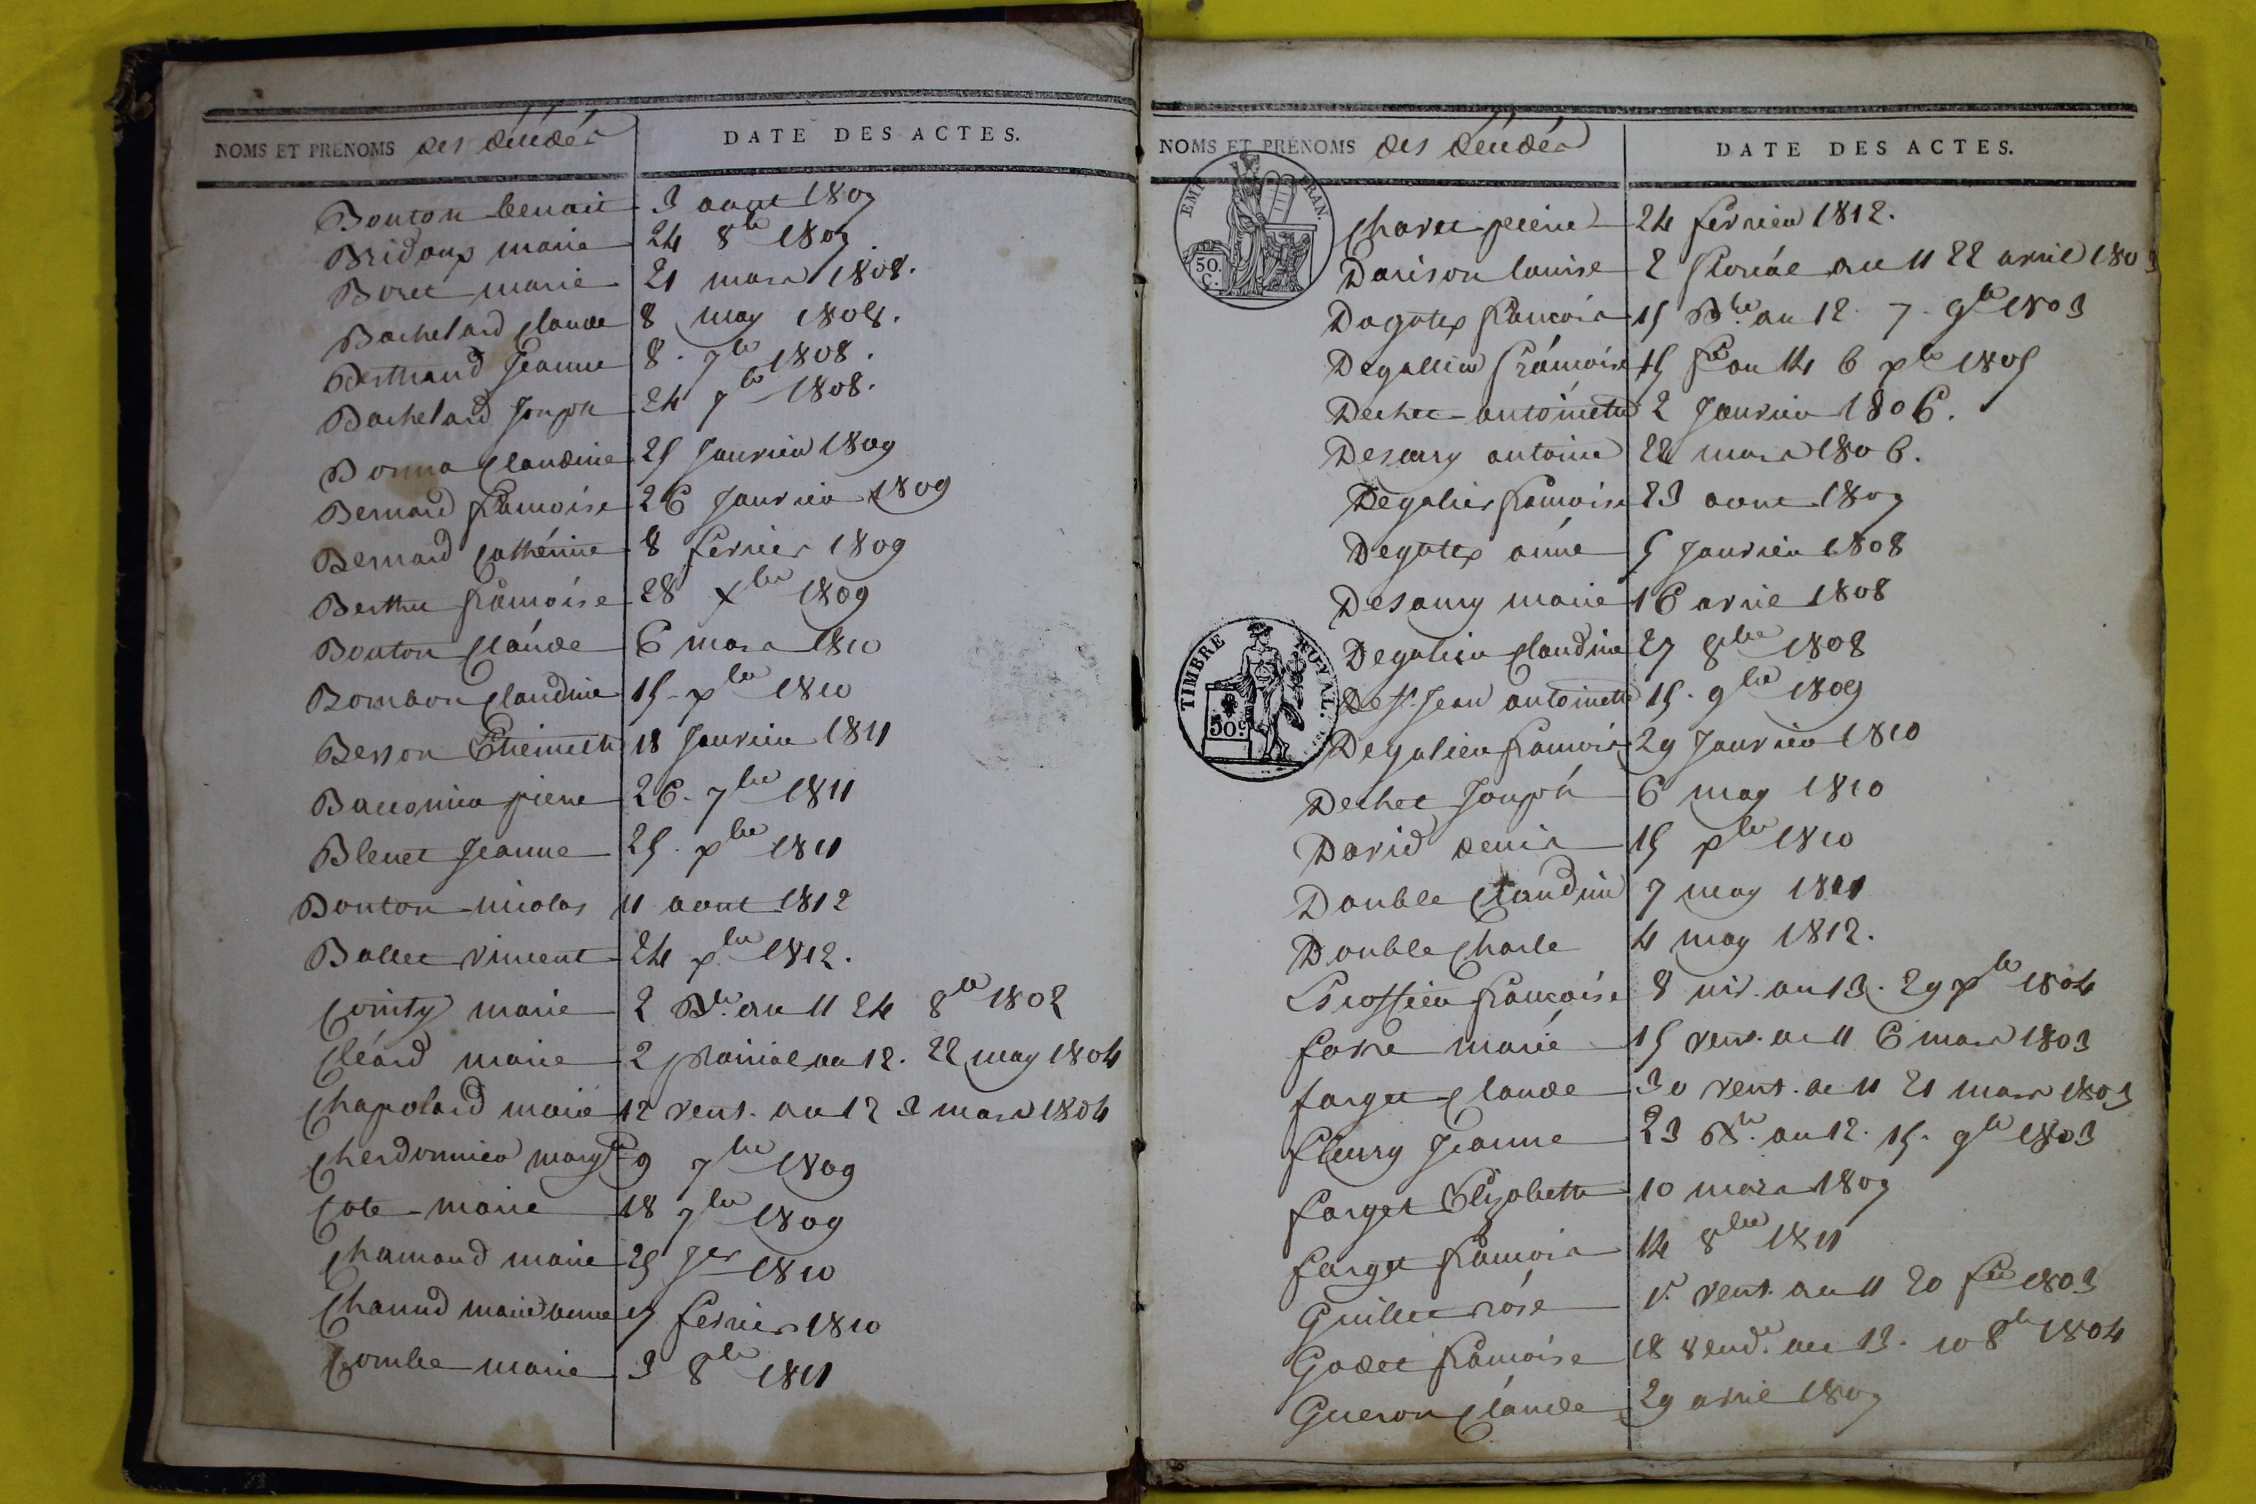 NOMS ET PRENOMS des décédés
DATE DES ACTES.
Bouton benoit 3 aout 1807
Bridoux marie 24 8bre 1807
Boret marie 21 mars 1808.
Bachelard Claude 8 may 1808.
Berthaud Jeanne 8. 7bre 1808.
Bachelard Joseph 24 7bre 1808.
Donna Claudine 25 Janvier 1809
Bernard françoise 26 Janvier 1809
Bernard Cathérine 8 fevrier 1809
Berthu françoise 28 xbre 1809
Bouton Claude 6 mars 1810
Bombon Claudine 15 xbre 1810
Besson Etiennette 18 Janvier 1811
pierre 26. 7bre 1811
Blenet Jeanne 25. xbre 1811
Bouton nicolas 11 aout 1812
Ballet vincent 24 xbre 1812.
Cointy marie 2 Bre. an 11 24 8bre 1802
Cléard marie 2 prairial an 12. 22 may 1804
Chapolard marie 12 vent. an 12 3 mars 1804
Cherdonnier margte 9 7bre 1809
Cote marie 18 7bre 1809
Chamaud marie 25 Jer 1810
Chanud marie anne 17 fevrier 1810
Combe marie 3 8bre 1811
NOMS ET PRÉNOMS des décédés
DATE DES ACTES.
EMP. FRAN.
50. C.
Charet pierre 24 fevrier 1812.
Darison louise 2 floréal an 11 22 avril 1803
Dagotex françois 15 Bre. an 12. 7. 9bre 1803
Degallier françoise 15 fre an 14 6 xbre 1805
Dechet antoinette 2 Janvier 1806.
Desaury antoine 22 mars 1806.
Degalier françoise 23 aout 1807
Degotex anne 5 Janvier 1808
Desaury marie 16 avril 1808
Degalier Claudine 27 8bre 1808
TIMBRE ROYAL.
50c
De st. Jean antoinette 15. 9bre 1809
Degalier françois 29 Janvier 1810
Dechet Joseph 6 may 1810
David denis 15 xbre 1810
Double Claudine 7 may 1811
Double Charle 4 may 1812.
françoise 8 niv. an 13. 29 xbre 1804
favre marie 15 vent. an 11 6 mars 1803
farget Claude 30 vent. an 11 21 mars 1803
fleury Jeanne 23 Bre. an 12. 15. 9bre 1803
farget Elizabette 10 mars 1807
farget françois 14 8bre 1811
Guillet rose 1r. vent. an 11 20 fer 1803
Godet françoise 18 vend. an 13. 10 8bre 1804
Gueron Claude 29 avril 1807